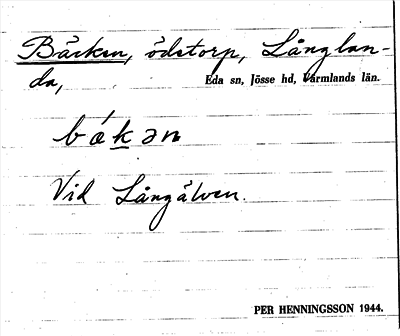 Bäcken, ödetorp, Långlan-
da,
Eda sn, Jösse hd, Värmlands län.
bǽkən
Vid Långälven.
PER HENNINGSSON 1944.